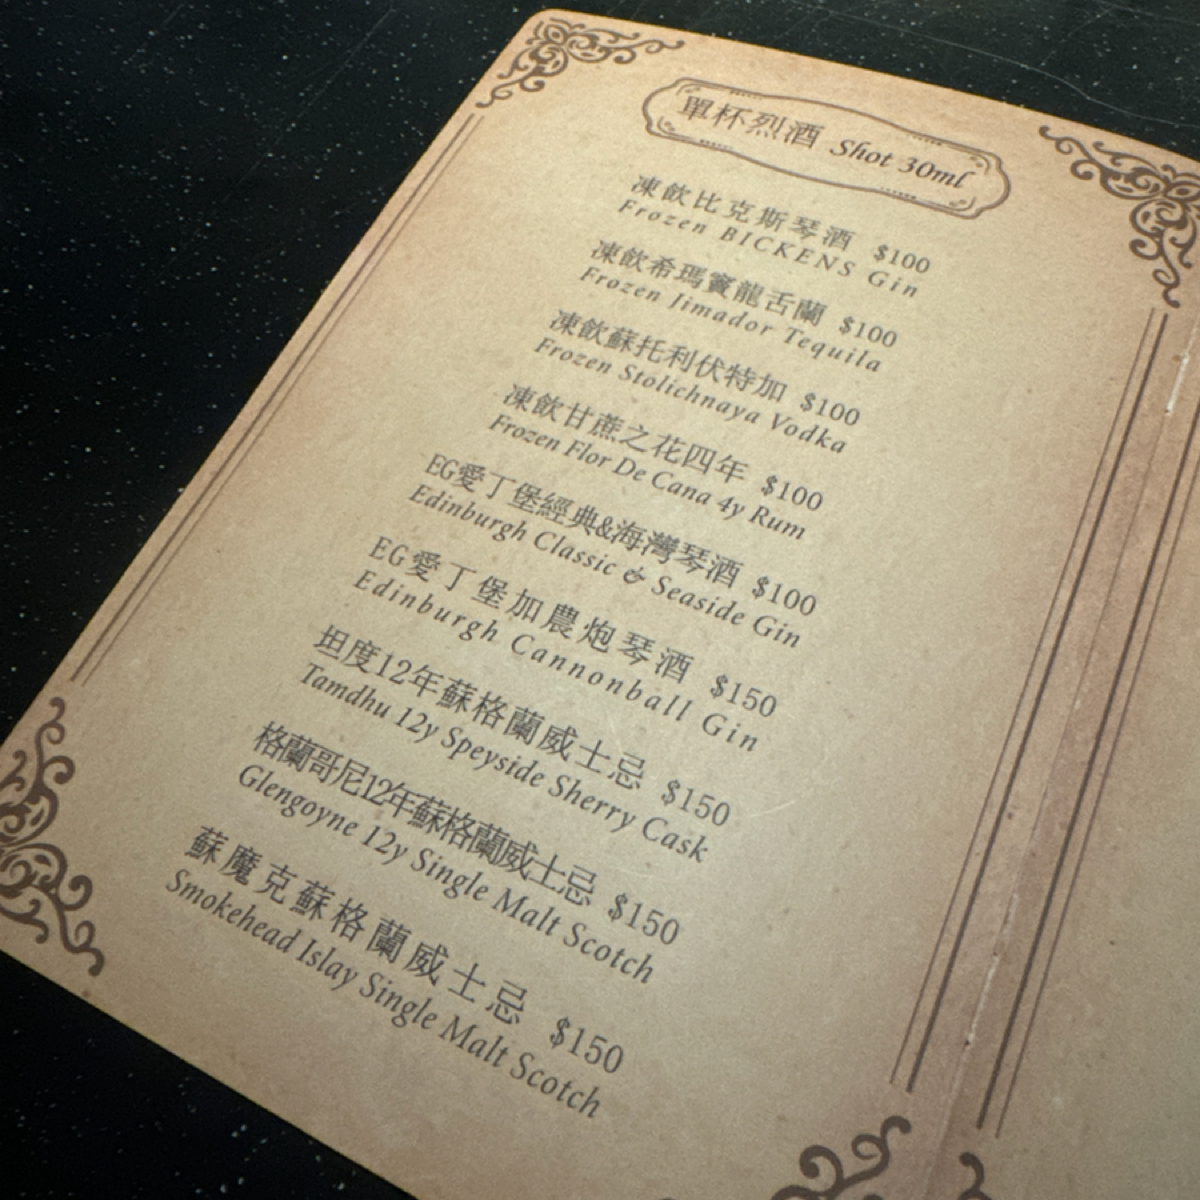 單杯烈酒 Shot 30ml
凍飲比克斯琴酒 $100
Frozen BICKENS Gin
凍飲希瑪竇龍舌蘭 $100
Frozen Jimador Tequila
凍飲蘇托利伏特加 $100
Frozen Stolichnaya Vodka
凍飲甘蔗之花四年 $100
Frozen Flor De Cana 4y Rum
EG愛丁堡經典&海灣琴酒 $100
Edinburgh Classic & Seaside Gin
EG愛丁堡加農炮琴酒 $150
Edinburgh Cannonball Gin
坦度12年蘇格蘭威士忌 $150
Tamdhu 12y Speyside Sherry Cask
格蘭哥尼12年蘇格蘭威士忌 $150
Glengoyne 12y Single Malt Scotch
蘇魔克蘇格蘭威士忌 $150
Smokehead Islay Single Malt Scotch